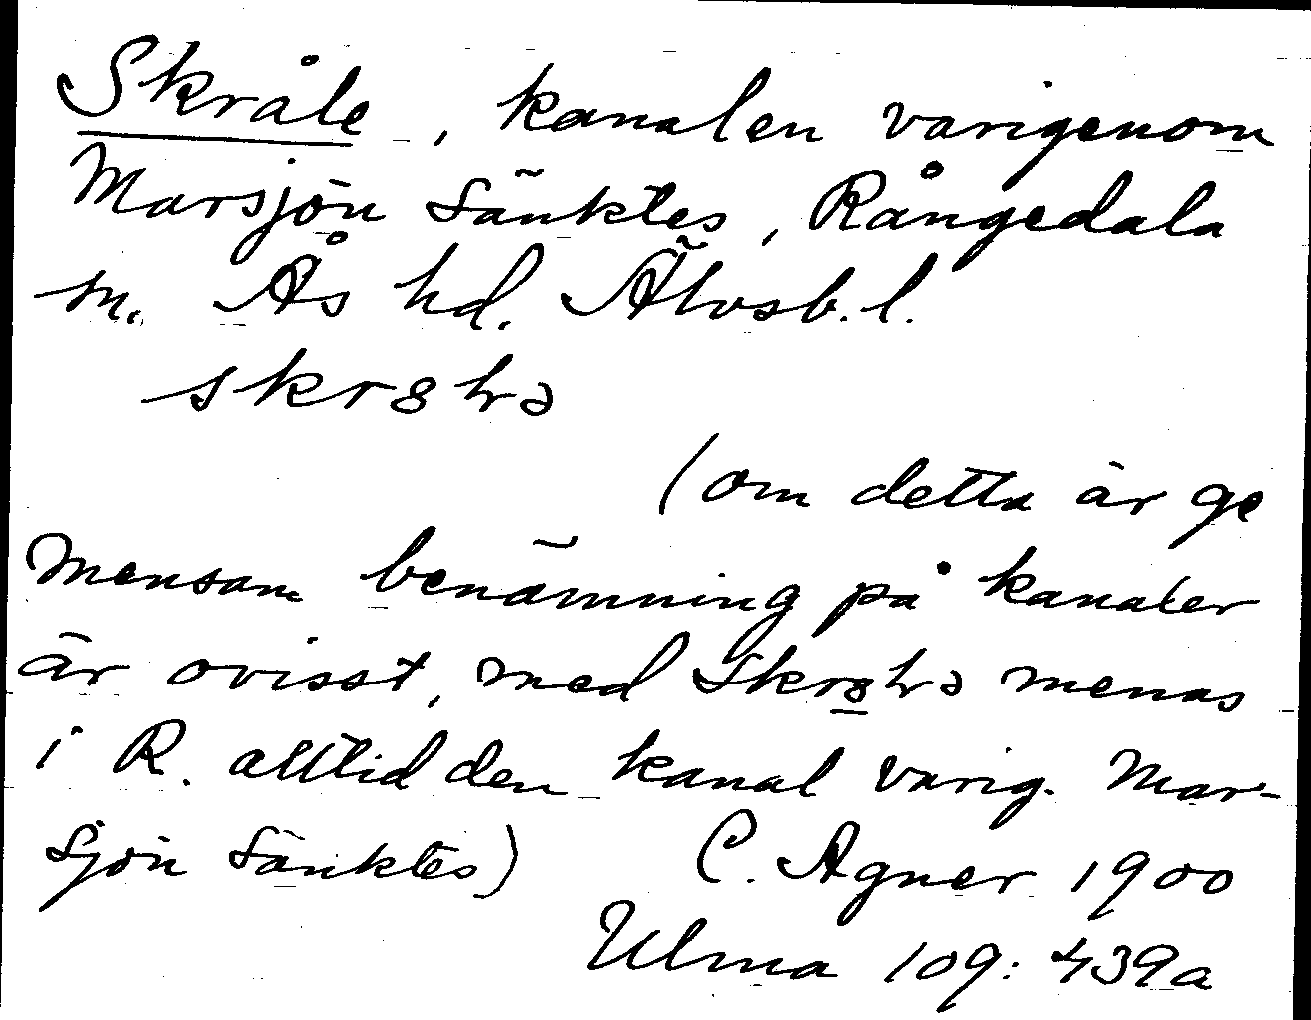 Skråle, kanalen varigenom
Marsjön sänktes, Rångedala
sn. Ås hd. Älvsb. l.
skr8lrə
(om detta är ge
mensam benämning på kanaler
är ovisst, med Skr8lrə menas
i R. alltid den kanal varig. Mar-
sjön sänktes) C. Agner 1900
Ulma 109: 439a